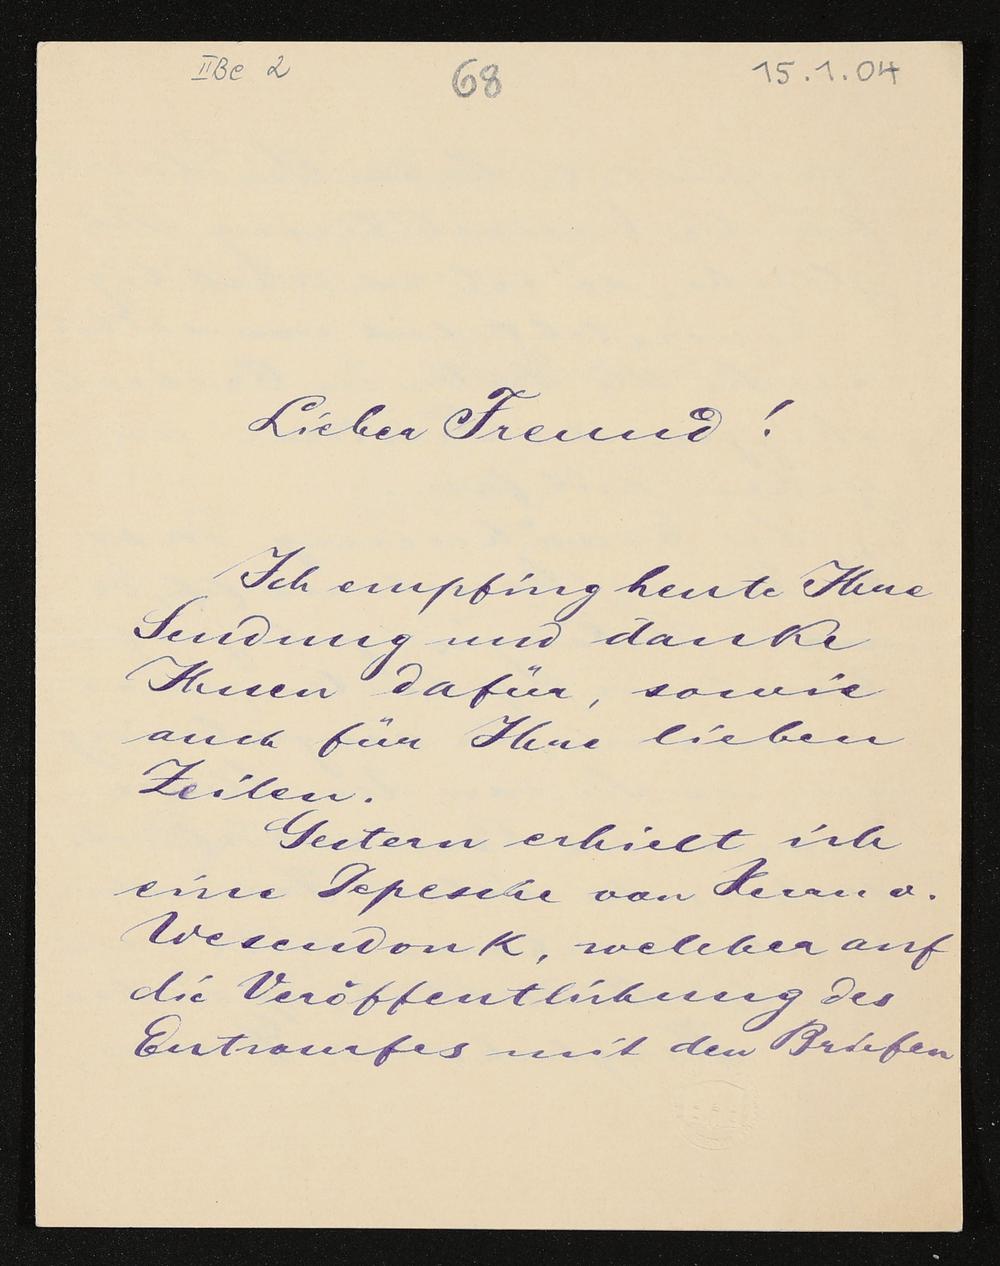 IIBe 2
68
15.1.04
Lieber Freund !
Ich empfing heute Ihre
Sendung und danke
Ihnen dafür, sowie
auch für Ihre lieben
Zeilen.
Gestern erhielt ich
eine Depesche von Herrn v.
Wesendonk, welcher auf
die Veröffentlichung des
Entwurfes mit den Briefen